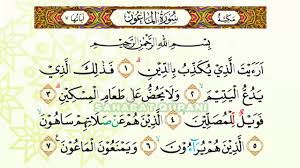 مكية سورة الماعون آياتها ٧
بِسْمِ اللهِ الرَّحْمٰنِ الرَّحِيْمِ
اَرَءَيْتَ الَّذِيْ يُكَذِّبُ بِالدِّيْنِ ۝١ فَذٰلِكَ الَّذِيْ
يَدُعُّ الْيَتِيْمَ ۝٢ وَلَا يَحُضُّ عَلٰى طَعَامِ الْمِسْكِيْنِ ۝٣
SAHABAT QURANI
فَوَيْلٌ لِّلْمُصَلِّيْنَ ۝٤ الَّذِيْنَ هُمْ عَنْ صَلَاتِهِمْ سَاهُوْنَ
۝٥ الَّذِيْنَ هُمْ يُرَآءُوْنَ ۝٦ وَيَمْنَعُوْنَ الْمَاعُوْنَ ۝٧